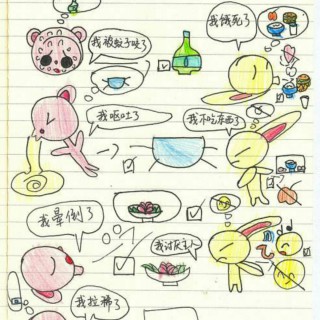 我被蚊子咬了
我饿死了
我呕吐了
我不吃东西了
我晕倒了
我讨厌主人
我拉稀了